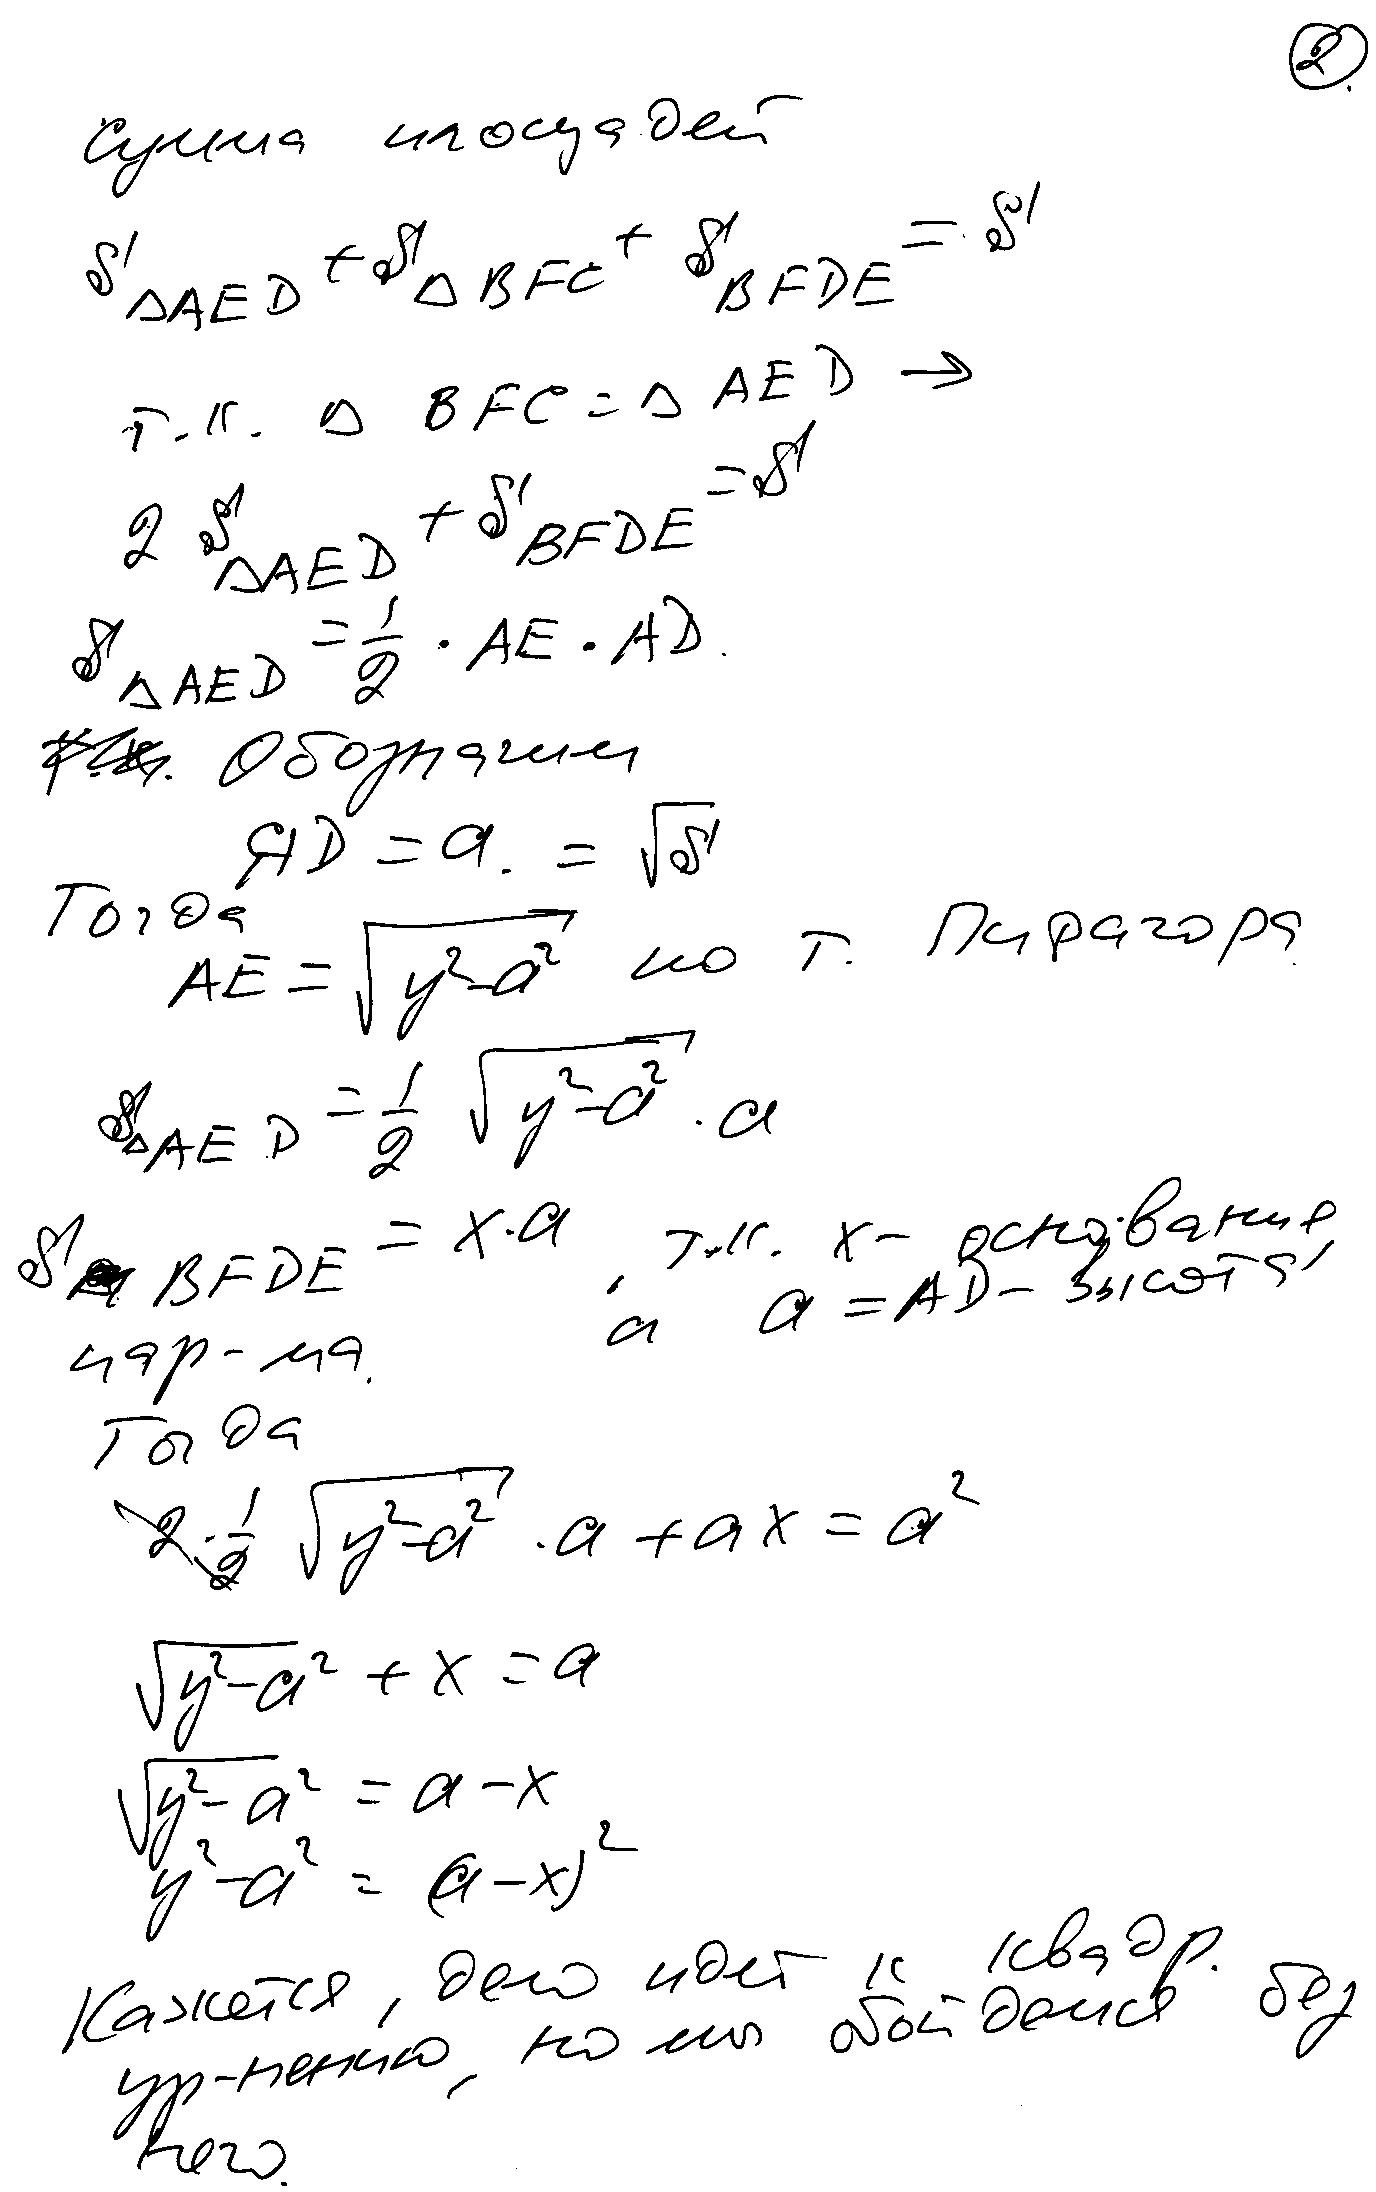 2.
Сумма площадей
S△AED + S△BFC + S BFDE = S
т.к. △ BFC = △ AED →
2 S△AED + S BFDE = S
S△AED = 1/2 · AE · AD.
Обозначим
AD = a. = √S
Тогда
AE = √(y²-a²) по т. Пифагора
S△AED = 1/2 √(y²-a²) · a
S BFDE = x·a, т.к. x - основание,
а a = AD - высота
пар-ма.
Тогда
2·1/2 √(y²-a²) · a + ax = a²
√(y²-a²) + x = a
√(y²-a²) = a - x
y²-a² = (a-x)²
Кажется, дело идет к квадр.
ур-нению, но мы обойдемся без
него.